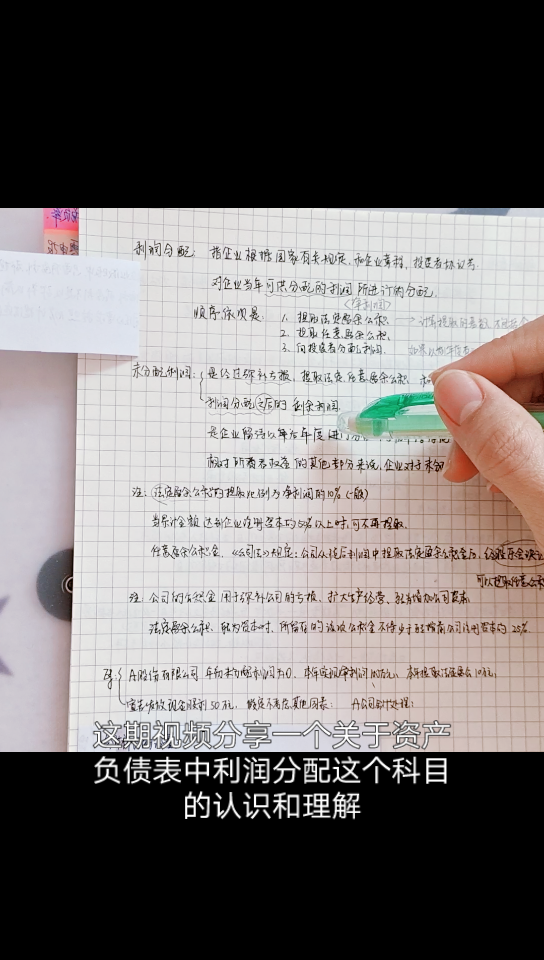 利润分配: 指企业根据国家有关规定,和企业章程、投资者协议等.
对企业当年可供分配的利润所进行的分配.
(净利润)
顺序依次是: 1. 提取法定盈余公积.
2. 提取任意盈余公积.
3. 向投资者分配利润.
未分配利润: 是经过弥补亏损、提取法定、任意盈余公积、
利润分配之后的剩余利润.
是企业留待以后年度进行
相对所有者权益的其他部分来说,企业对于未
注: 法定盈余公积的提取比例为净利润的10% (一般)
当累计金额达到企业注册资本的50%以上时,可不再提取.
任意盈余公积, 《公司法》规定: 公司从税后利润中提取法定盈余公积后, 经股东会决
可以提取任意公积
注: 公司的公积金用于弥补公司的亏损、扩大生产经营、
法定盈余公积 转为资本时, 所留存的该项公积金不得少于转增前公司注册资本的 25%
例: A股份有限公司 年初未分配利润为0, 本年实现净利润 本年提取法定盈余
宣告发放现金股利50万元, 假定不考虑其他因素: A公司
这期视频分享一个关于资产
负债表中利润分配这个科目
的认识和理解